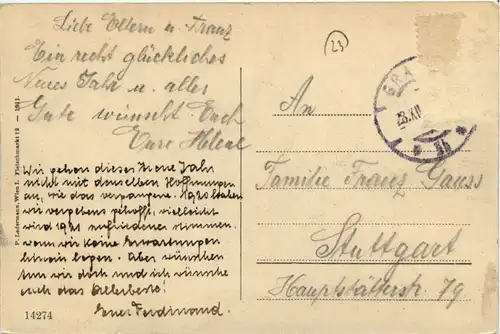 Liebe Eltern u. Franz
Ein recht glückliches
Neues Jahr u. alles
Gute wünscht Euch
Eure Helene
Wir gehen dieses Neue Jahr
nicht mit denselben Hoffnungen
an, wie das vergangene. 1920 haben
wir vergebens gehofft, vielleicht
wird 1921 zufriedener stimmen,
wenn wir keine Erwartungen
hinein legen. Aber wünschen
tun wir doch und ich wünsche
euch das Allerbeste!
Euer Ferdinand.
23
GRA
23.XII
8b
An
Familie Franz Gauss
Stuttgart
Hauptstätterstr 79
P. Ledermann, Wien I. Fleischmarkt 12 — 1917.
14274